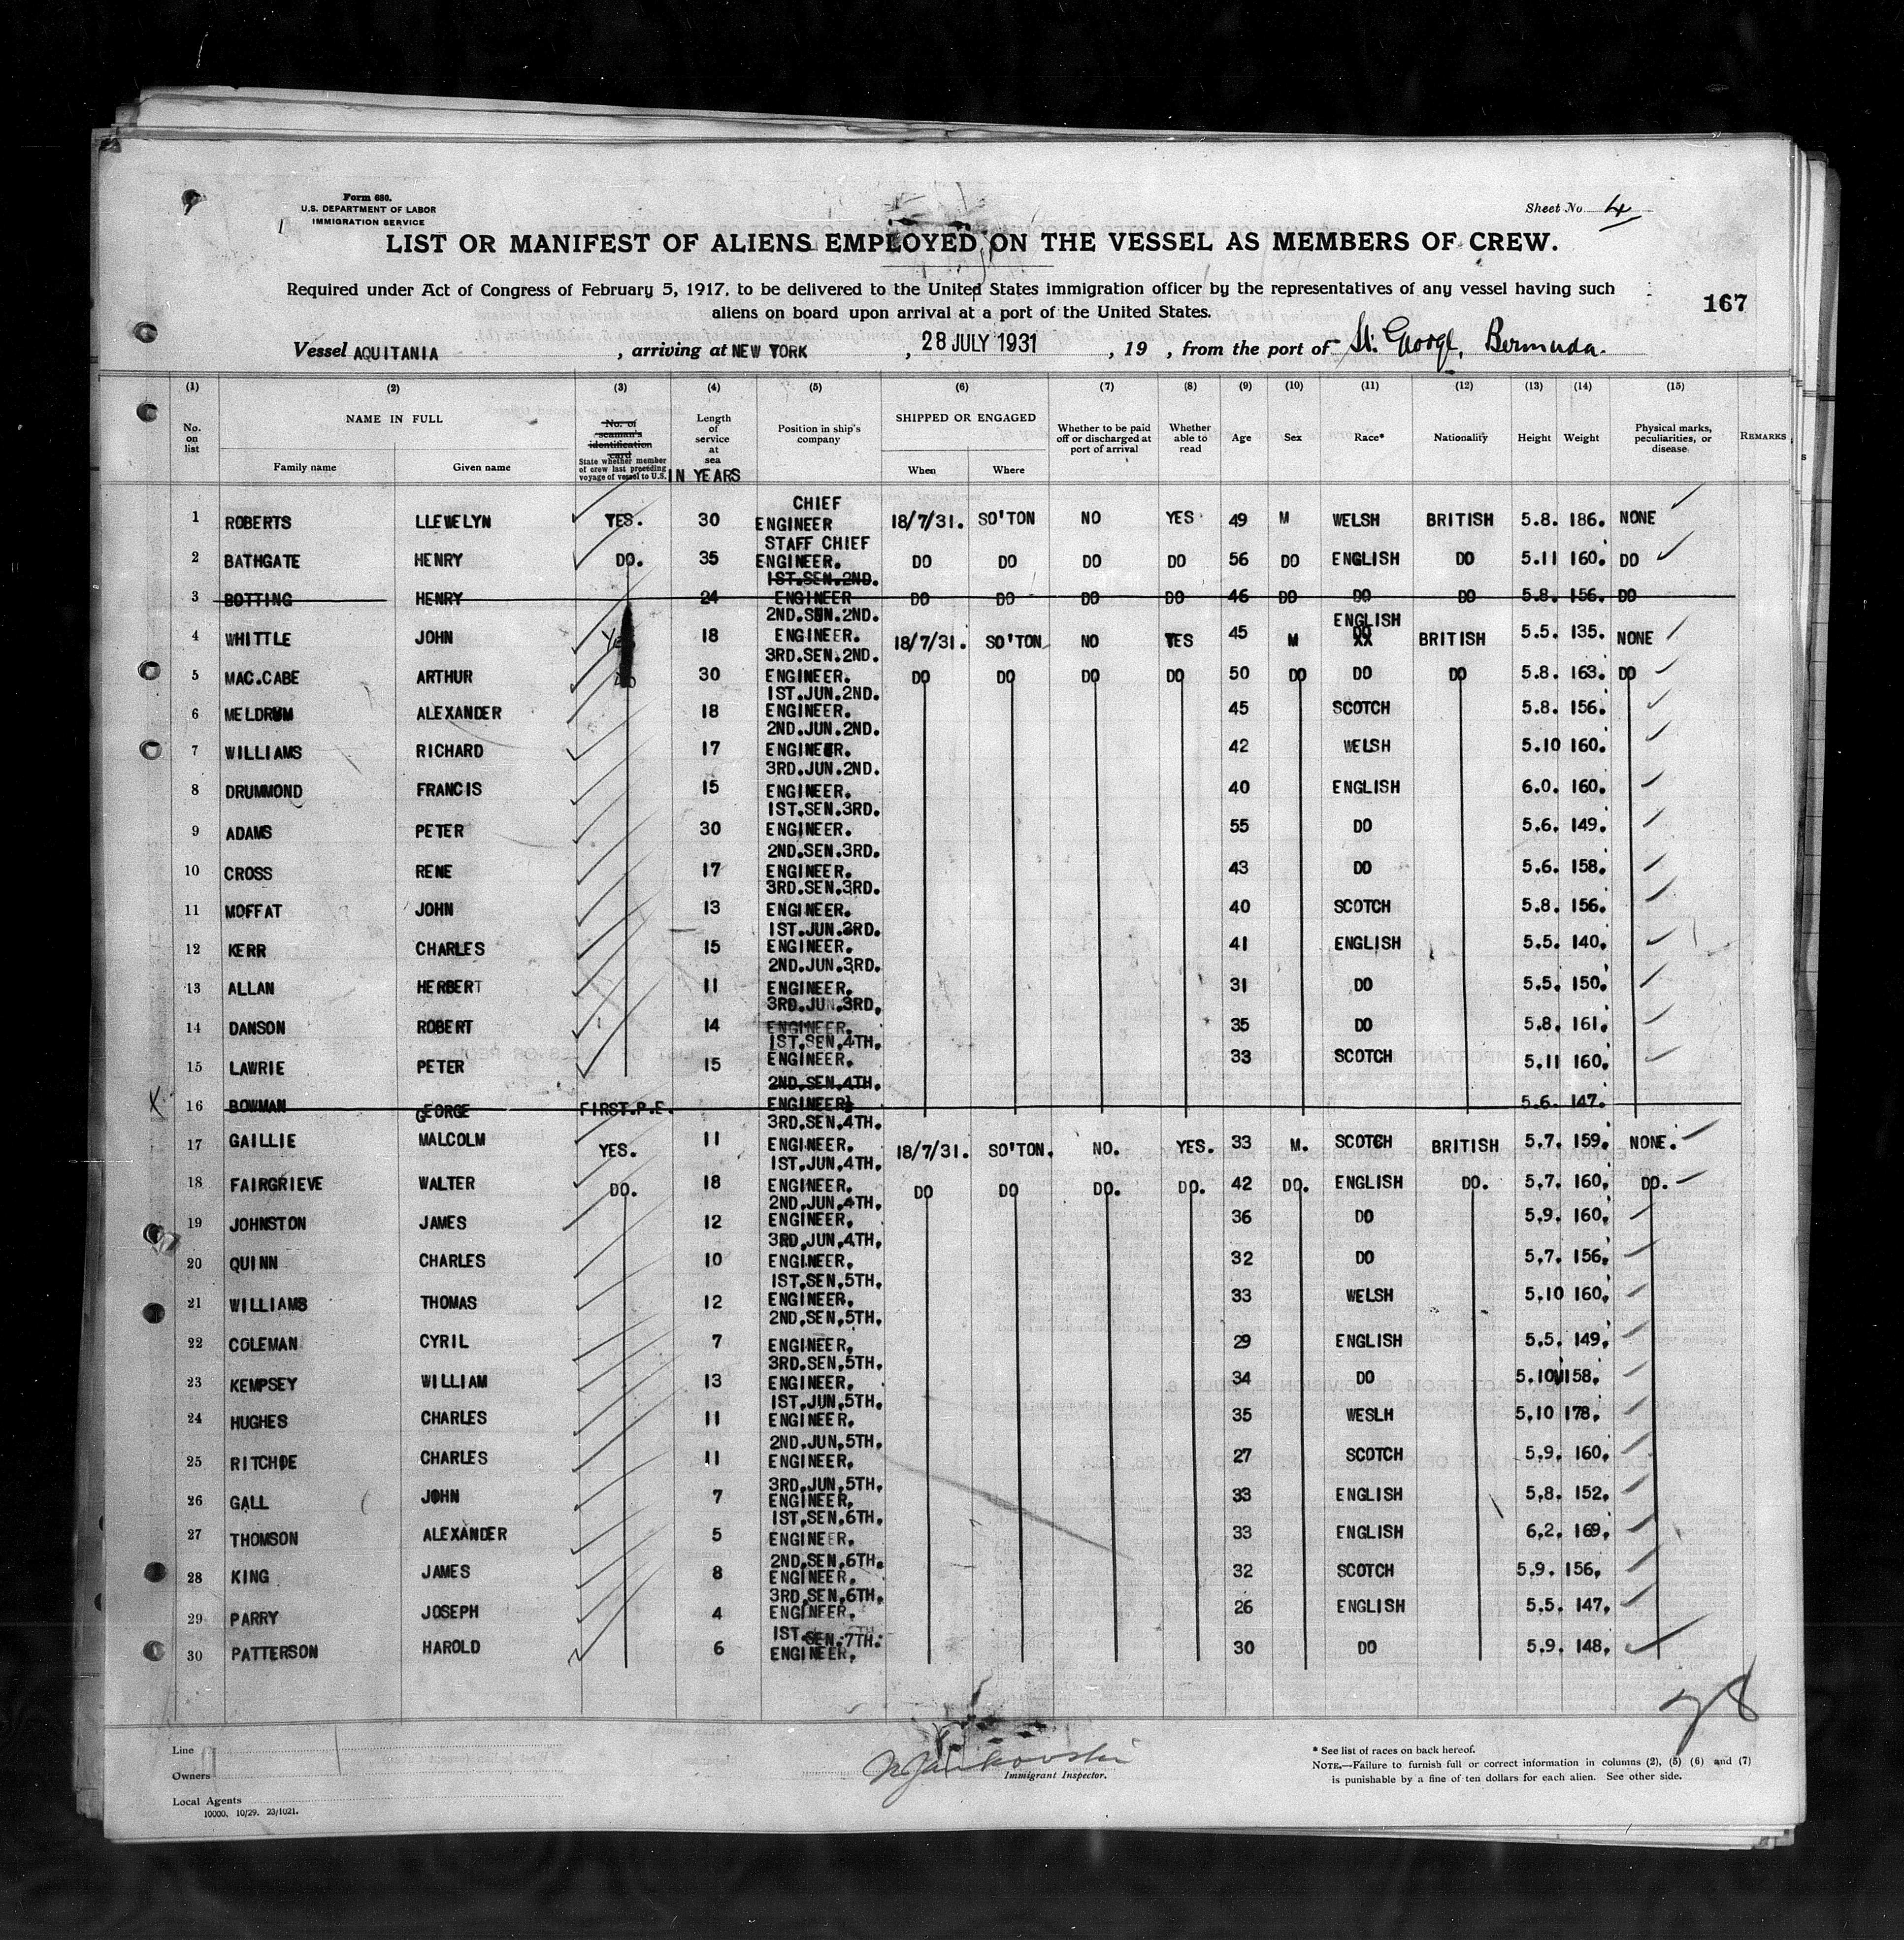 Form 680.
U.S. DEPARTMENT OF LABOR
IMMIGRATION SERVICE
Sheet No 4
LIST OR MANIFEST OF ALIENS EMPLOYED ON THE VESSEL AS MEMBERS OF CREW.
Required under Act of Congress of February 5, 1917, to be delivered to the United States immigration officer by the representatives of any vessel having such
aliens on board upon arrival at a port of the United States.
167
Vessel AQUITANIA , arriving at NEW YORK , 28 JULY 1931 , 19 , from the port of St. George, Bermuda.
(1) (2) (3) (4) (5) (6) (7) (8) (9) (10) (11) (12) (13) (14) (15)
No. on list
NAME IN FULL
Family name Given name
No. of seaman's identification card
State whether member of crew last preceding voyage of vessel to U.S.
Length of service at sea
IN YEARS
Position in ship's company
SHIPPED OR ENGAGED
When Where
Whether to be paid off or discharged at port of arrival
Whether able to read
Age Sex Race* Nationality Height Weight
Physical marks, peculiarities, or disease
REMARKS
1 ROBERTS LLEWELYN YES. 30 CHIEF ENGINEER 18/7/31. SO'TON NO YES 49 M WELSH BRITISH 5.8. 186. NONE
2 BATHGATE HENRY DO. 35 STAFF CHIEF ENGINEER. DO DO DO DO 56 DO ENGLISH DO 5.11 160. DO
3 BOTTING HENRY 24 1ST.SEN.2ND. ENGINEER DO DO DO DO 46 DO DO DO 5.8. 156. DO
4 WHITTLE JOHN 18 2ND.SEN.2ND. ENGINEER. 18/7/31. SO'TON NO YES 45 M ENGLISH BRITISH 5.5. 135. NONE
5 MAC.CABE ARTHUR 30 3RD.SEN.2ND. ENGINEER. DO DO DO DO 50 DO DO DO 5.8. 163. DO
6 MELDRUM ALEXANDER 18 1ST.JUN.2ND. ENGINEER. 45 SCOTCH 5.8. 156.
7 WILLIAMS RICHARD 17 2ND.JUN.2ND. ENGINEER. 42 WELSH 5.10 160.
8 DRUMMOND FRANCIS 15 3RD.JUN.2ND. ENGINEER. 40 ENGLISH 6.0. 160.
9 ADAMS PETER 30 1ST.SEN.3RD. ENGINEER. 55 DO 5.6. 149.
10 CROSS RENE 17 2ND.SEN.3RD. ENGINEER. 43 DO 5.6. 158.
11 MOFFAT JOHN 13 3RD.SEN.3RD. ENGINEER. 40 SCOTCH 5.8. 156.
12 KERR CHARLES 15 1ST.JUN.3RD. ENGINEER. 41 ENGLISH 5.5. 140.
13 ALLAN HERBERT 11 2ND.JUN.3RD. ENGINEER. 31 DO 5.5. 150.
14 DANSON ROBERT 14 3RD.JUN.3RD. ENGINEER. 35 DO 5.8. 161.
15 LAWRIE PETER 15 1ST.SEN.4TH. ENGINEER. 33 SCOTCH 5.11 160.
16 BOWMAN GEORGE FIRST.P.E. 2ND.SEN.4TH. ENGINEER. 5.6. 147.
17 GAILLIE MALCOLM YES. 11 3RD.SEN.4TH. ENGINEER. 18/7/31. SO'TON. NO. YES. 33 M. SCOTCH BRITISH 5.7. 159. NONE.
18 FAIRGRIEVE WALTER DO. 18 1ST.JUN.4TH. ENGINEER. DO DO DO. DO. 42 DO. ENGLISH DO. 5.7. 160. DO.
19 JOHNSTON JAMES 12 2ND.JUN.4TH. ENGINEER. 36 DO 5.9. 160.
20 QUINN CHARLES 10 3RD.JUN.4TH. ENGINEER. 32 DO 5.7. 156.
21 WILLIAMS THOMAS 12 1ST.SEN.5TH. ENGINEER. 33 WELSH 5.10 160.
22 COLEMAN CYRIL 7 2ND.SEN.5TH. ENGINEER. 29 ENGLISH 5.5. 149.
23 KEMPSEY WILLIAM 13 3RD.SEN.5TH. ENGINEER. 34 DO 5.10 158.
24 HUGHES CHARLES 11 1ST.JUN.5TH. ENGINEER. 35 WESLH 5.10 178.
25 RITCHDE CHARLES 11 2ND.JUN.5TH. ENGINEER. 27 SCOTCH 5.9. 160.
26 GALL JOHN 7 3RD.JUN.5TH. ENGINEER. 33 ENGLISH 5.8. 152.
27 THOMSON ALEXANDER 5 1ST.SEN.6TH. ENGINEER. 33 ENGLISH 6.2. 169.
28 KING JAMES 8 2ND.SEN.6TH. ENGINEER. 32 SCOTCH 5.9. 156.
29 PARRY JOSEPH 4 3RD.SEN.6TH. ENGINEER. 26 ENGLISH 5.5. 147.
30 PATTERSON HAROLD 6 1ST.SEN.7TH. ENGINEER. 30 DO 5.9. 148.
28
Line
Owners
Local Agents
10000. 10/29. 23/1021.
Immigrant Inspector.
* See list of races on back hereof.
NOTE.—Failure to furnish full or correct information in columns (2), (5) (6) and (7)
is punishable by a fine of ten dollars for each alien. See other side.